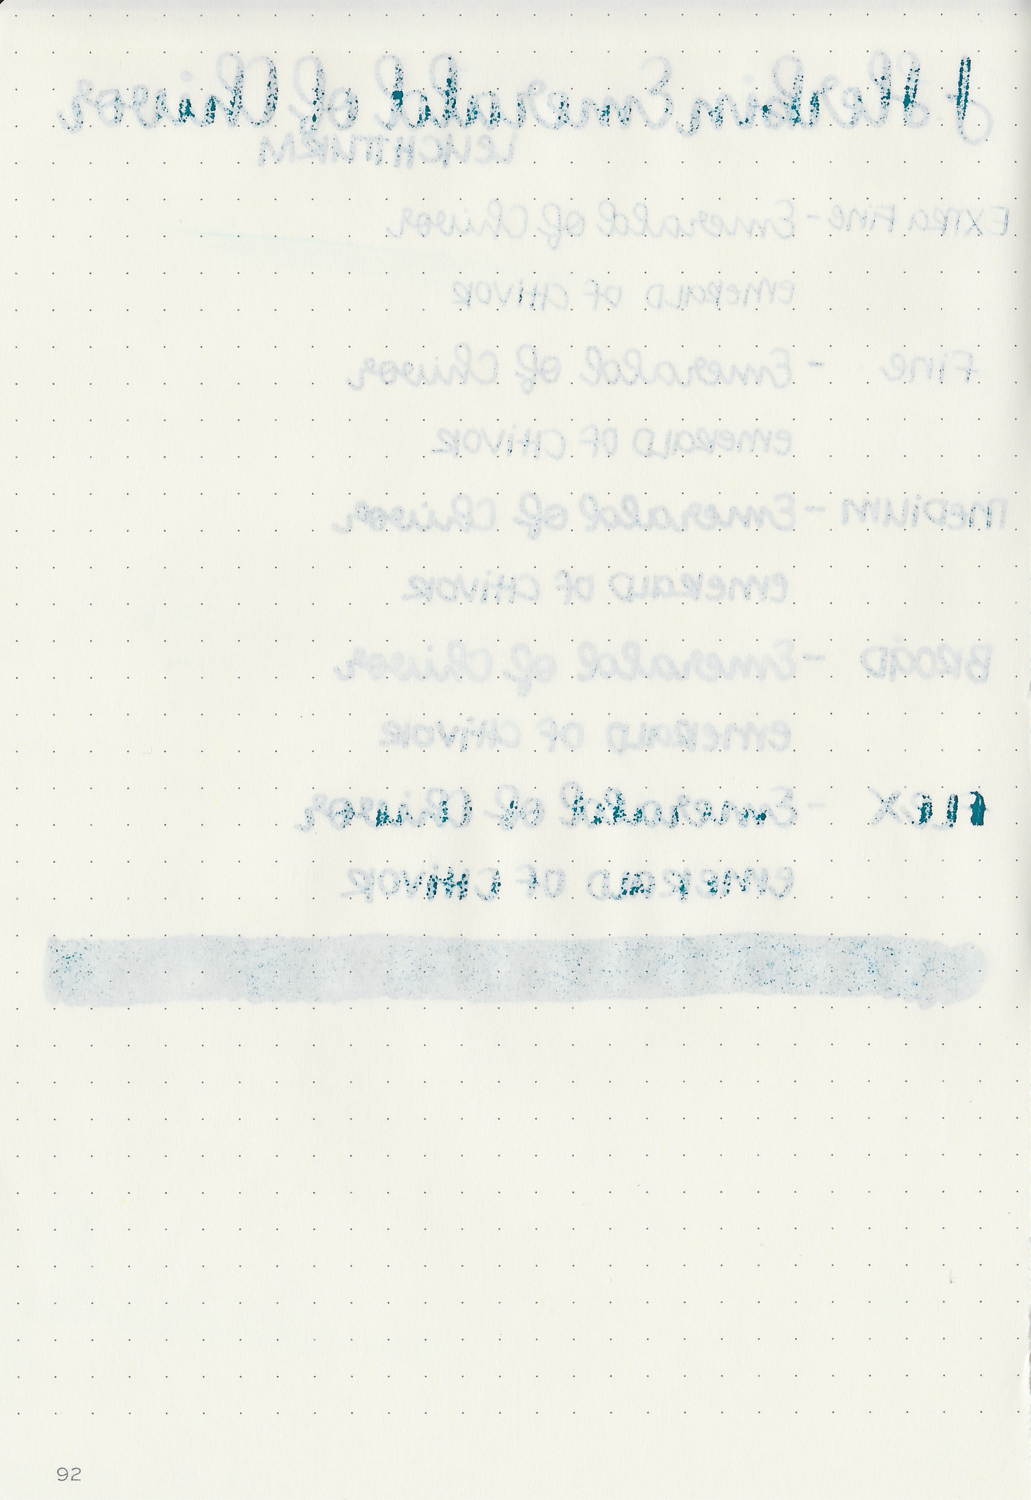 J Herbin Emerald of Chivor
LEUCHTTURM
EXTRA FINE - Emerald of Chivor
EMERALD OF CHIVOR
FINE - Emerald of Chivor
EMERALD OF CHIVOR
MEDIUM - Emerald of Chivor
EMERALD OF CHIVOR
BROAD - Emerald of Chivor
EMERALD OF CHIVOR
FLEX - Emerald of Chivor
EMERALD OF CHIVOR
92